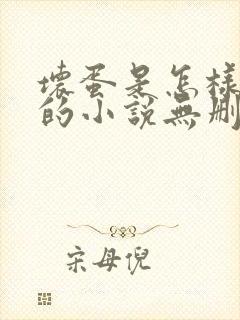 壞蛋是怎樣
的小說無刪
宋母倪